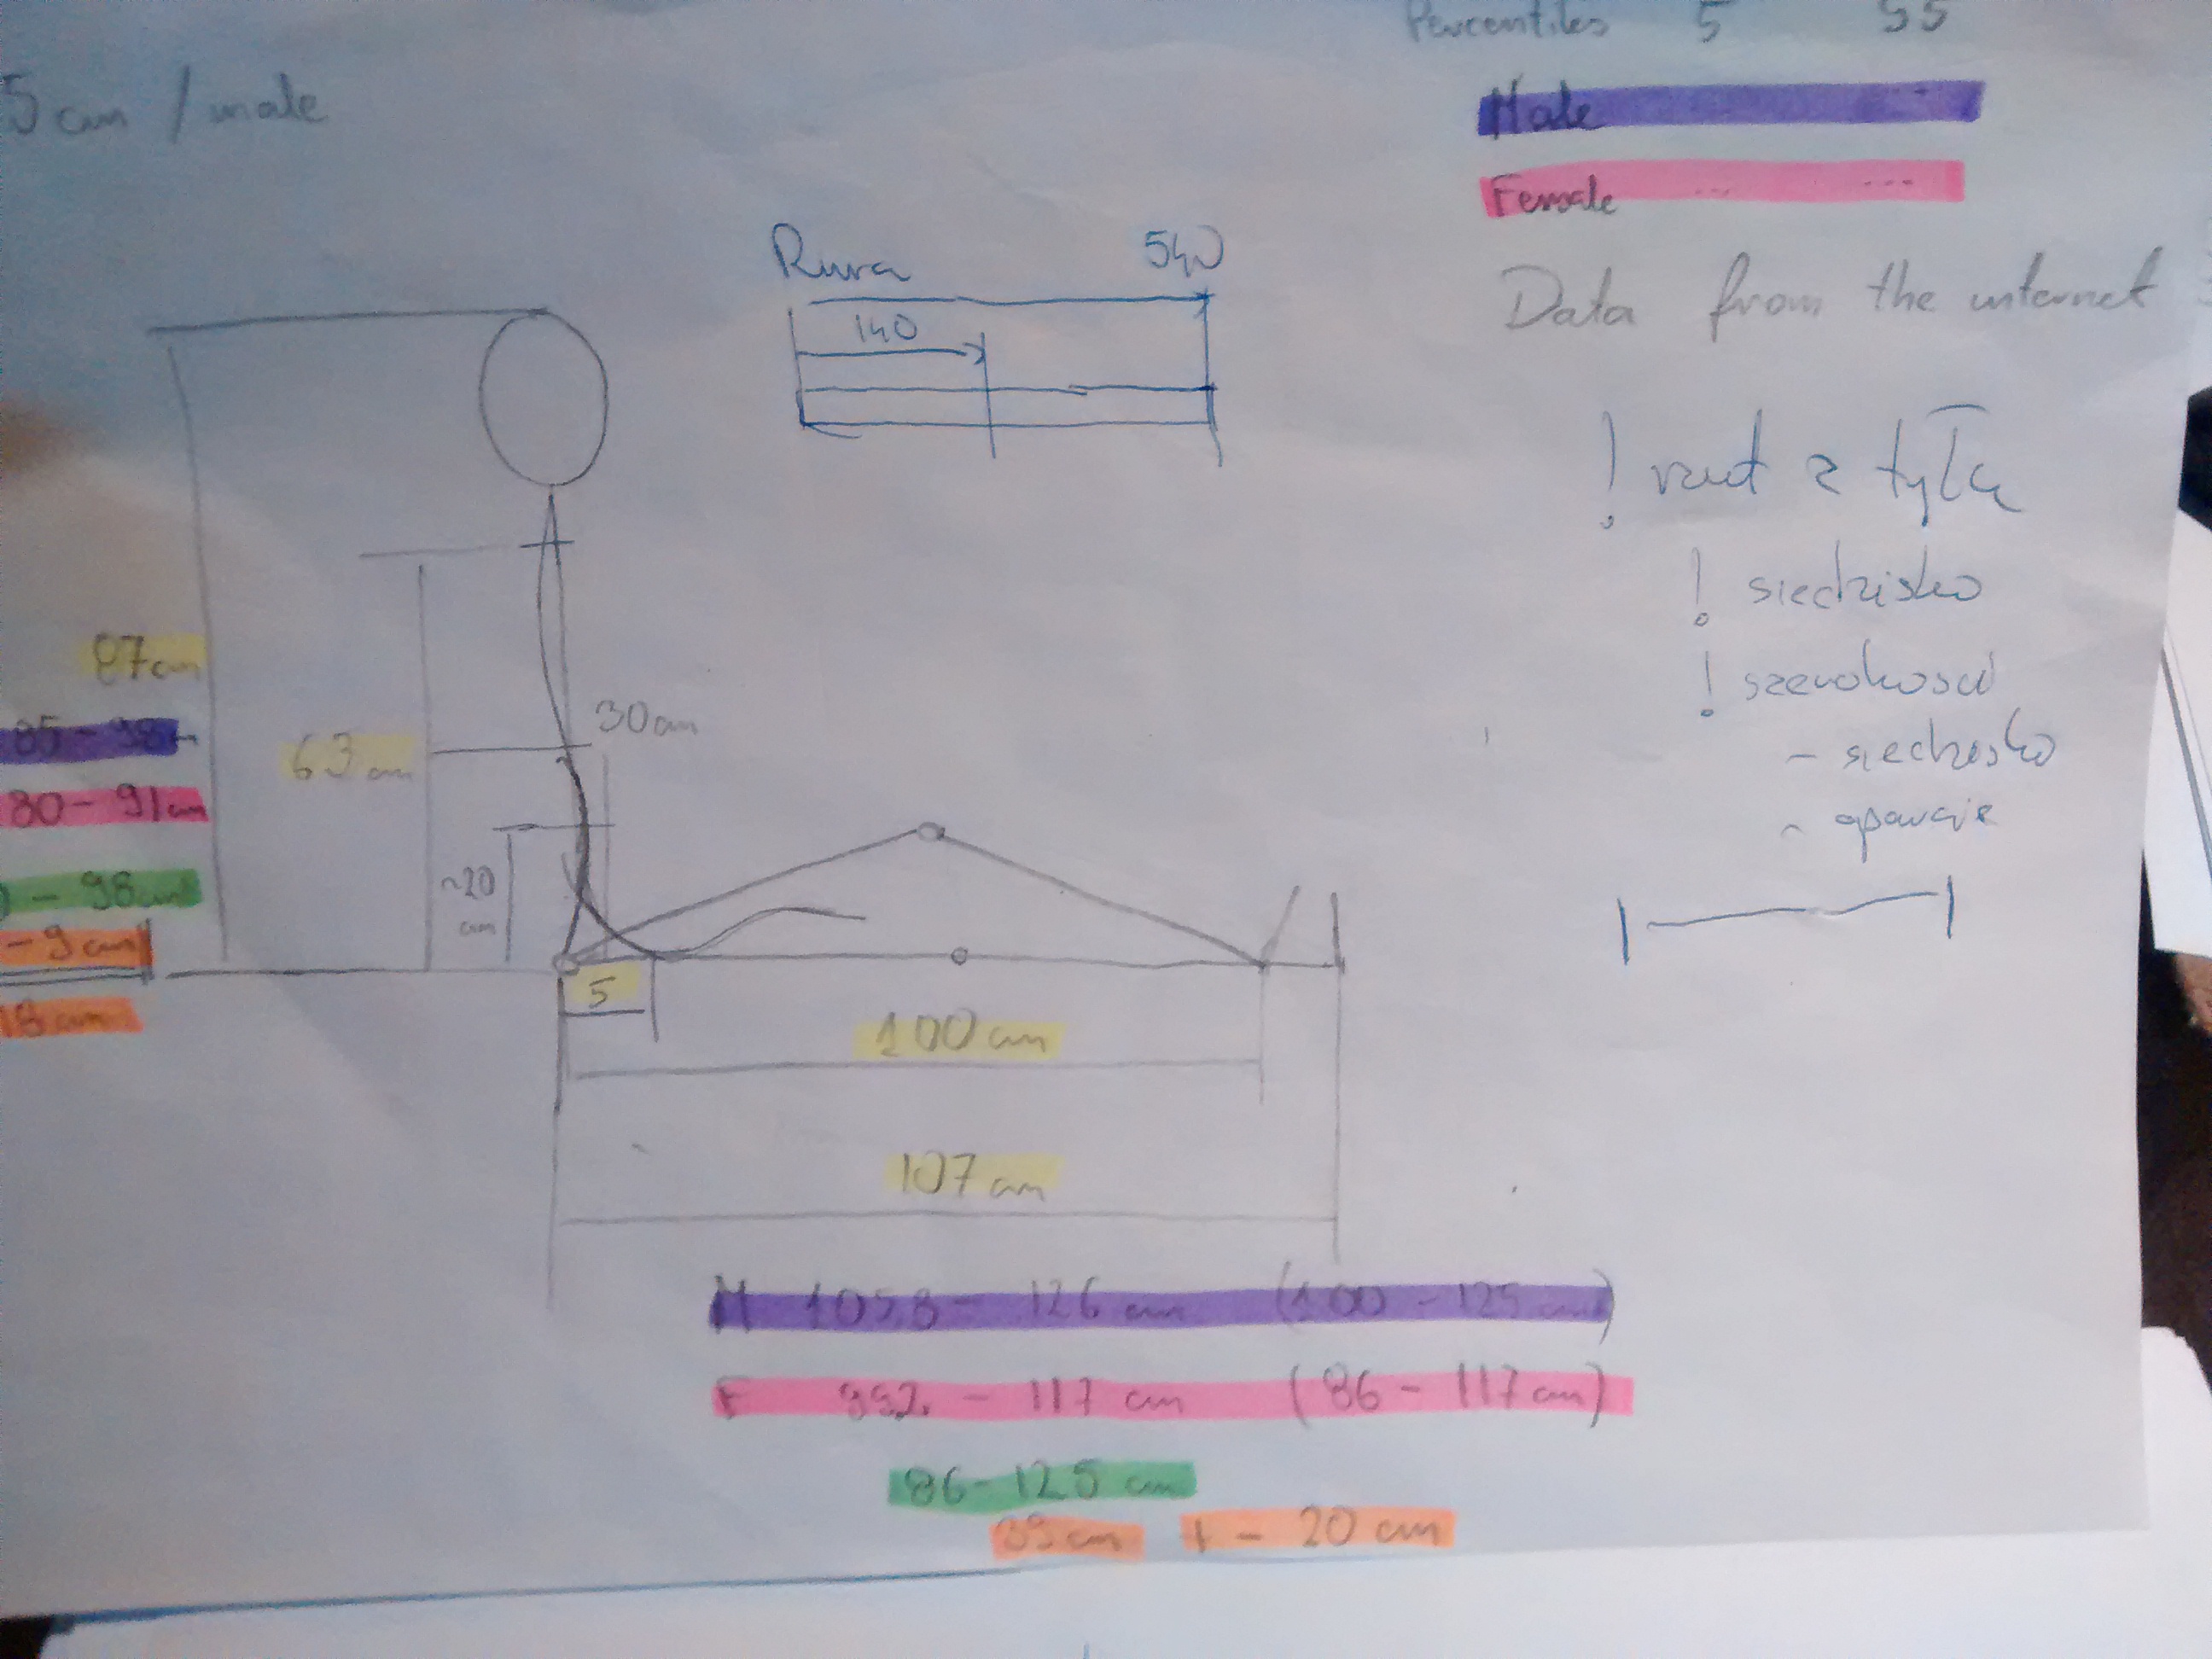 Percentiles 5 95
5 cm / male
Male
Female ... ...
Data from the internet
Rura 540
140
! rzut z tyłu
! siedzisko
! szerokości
- siedzisko
- oparcie
87cm
85-98
80-91cm
- 98cm
-9cm
18cm
63cm
30cm
~20
cm
5
100cm
107cm
M 105,8 - 126 cm (100 - 125 cm)
F 99,2 - 117 cm (86 - 117cm)
86-125 cm
39cm + - 20 cm